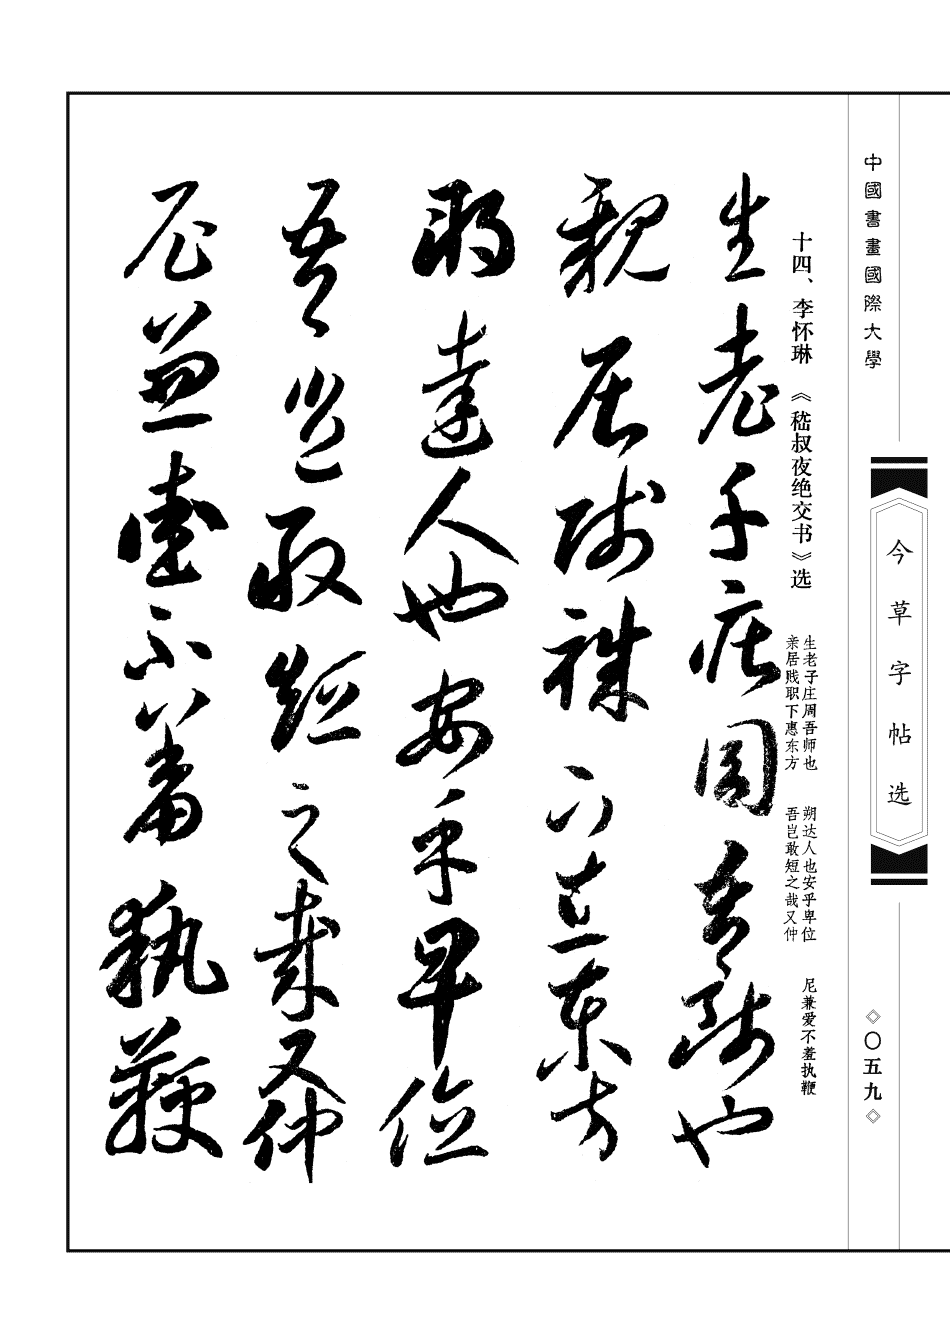 中國書畫國際大學
今草字帖选
◇〇五九◇
十四、李怀琳《嵇叔夜绝交书》选
生老子庄周吾师也
亲居贱职下惠东方
朔达人也安乎卑位
吾岂敢短之哉又仲
尼兼爱不羞执鞭
生老子莊周吾師也
親居賤職下惠東方
朔達人也安乎卑位
吾豈敢短之哉又仲
尼兼愛不羞執鞭